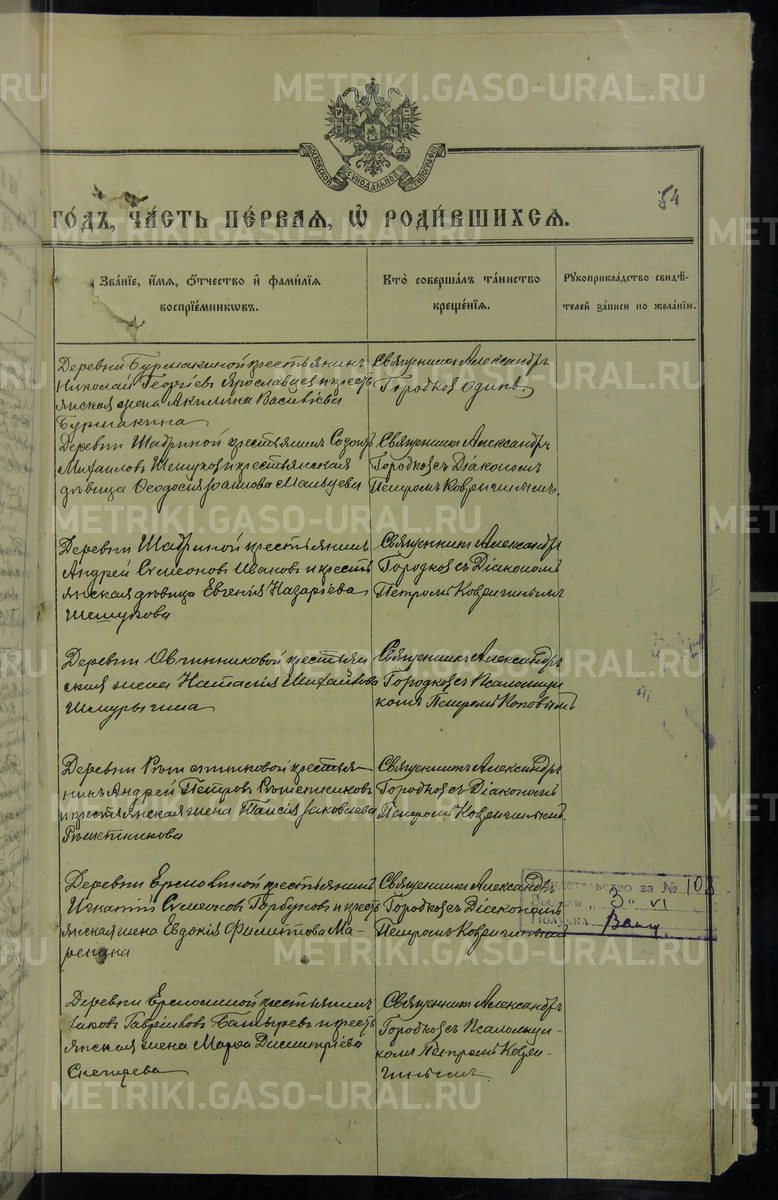 METRIKI.GASO-URAL.RU
МОСКОВСКОЙ СѴНОДАЛЬНОЙ ТИПОГРАФІИ
54
ГО́ДЪ, ЧА́СТЬ ПЕ́РВАЯ, Ѽ РОДИ́ВШИХСЯ.
Зва́нїе, и҆́мя, ѻ҆́тчество и҆ фами́лїя
воспрїе́мниковъ.
Кто̀ соверша́лъ та́инство
креще́нїя.
Рꙋкоприкла́дство свидѣ́-
телей за́писи по жела́нїю.
Деревни Бурмакиной крестьянинъ
Николай Георгіевъ Ярославцевъ и кресть
янская жена Акилина Васильева
Бурмакина
Священникъ Александръ
Городковъ один
Деревни Шабриной крестьянинъ Созонтъ
Михаиловъ Шешуковъ и крестьянская
дѣвица Ѳеодосія Іоаннова Мальцева
Священникъ Александръ
Городковъ съ Діакономъ
Петромъ Ковригинымъ.
Деревни Шабриной крестьянинъ
Андрей Симеоновъ Ивановъ и кресть
янская дѣвица Евгенія Назаріева
Шешукова
Священникъ Александръ
Городковъ съ Діакономъ
Петромъ Ковригинымъ
Деревни Овчинниковой крестьян
ская жена Настасія Михайлова
Шемурыгина
Священникъ Александръ
Городковъ съ Псаломщи
комъ Петромъ Поповымъ
Деревни Рѣшетниковой крестья
нинъ Андрей Петровъ Рѣшетниковъ
и крестьянская жена Таисія Іаковлева
Рѣшетникова
Священникъ Александръ
Городковъ съ Діакономъ
Петромъ Ковригинымъ.
Деревни Ермолиной крестьянинъ
Игнатій Симеоновъ Горбуновъ и кресть
янская жена Евдокія Филиппова Ма-
ренина
Священникъ Александръ
Городковъ съ Діакономъ
Петромъ Ковригинымъ
Свидетельство за № 103
„ 3 “ VI
Деревни Ермолиной крестьянинъ
Іаковъ Гавріиловъ Батыревъ и кресть
янская жена Марѳа Димитріева
Снегирева
Священникъ Александръ
Городковъ съ Псаломщи-
комъ Петромъ Коври-
гинымъ.